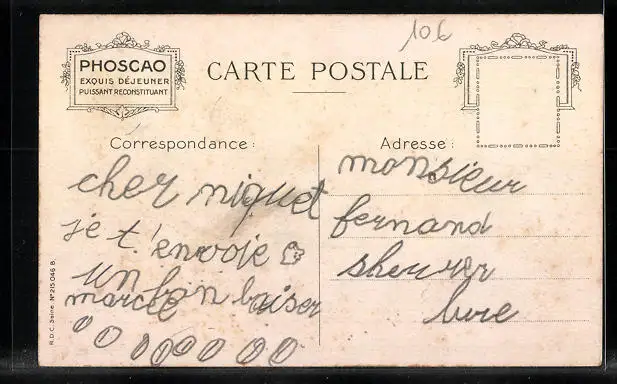 10€
PHOSCAO
EXQUIS DÉJEUNER
PUISSANT RECONSTITUANT
CARTE POSTALE
Correspondance :
cher niquet
je t'envoie
un bon baiser
marcel
Adresse :
monsieur
fernand
sheurer
lure
R.D.C. Seine. N° 215.046 B.